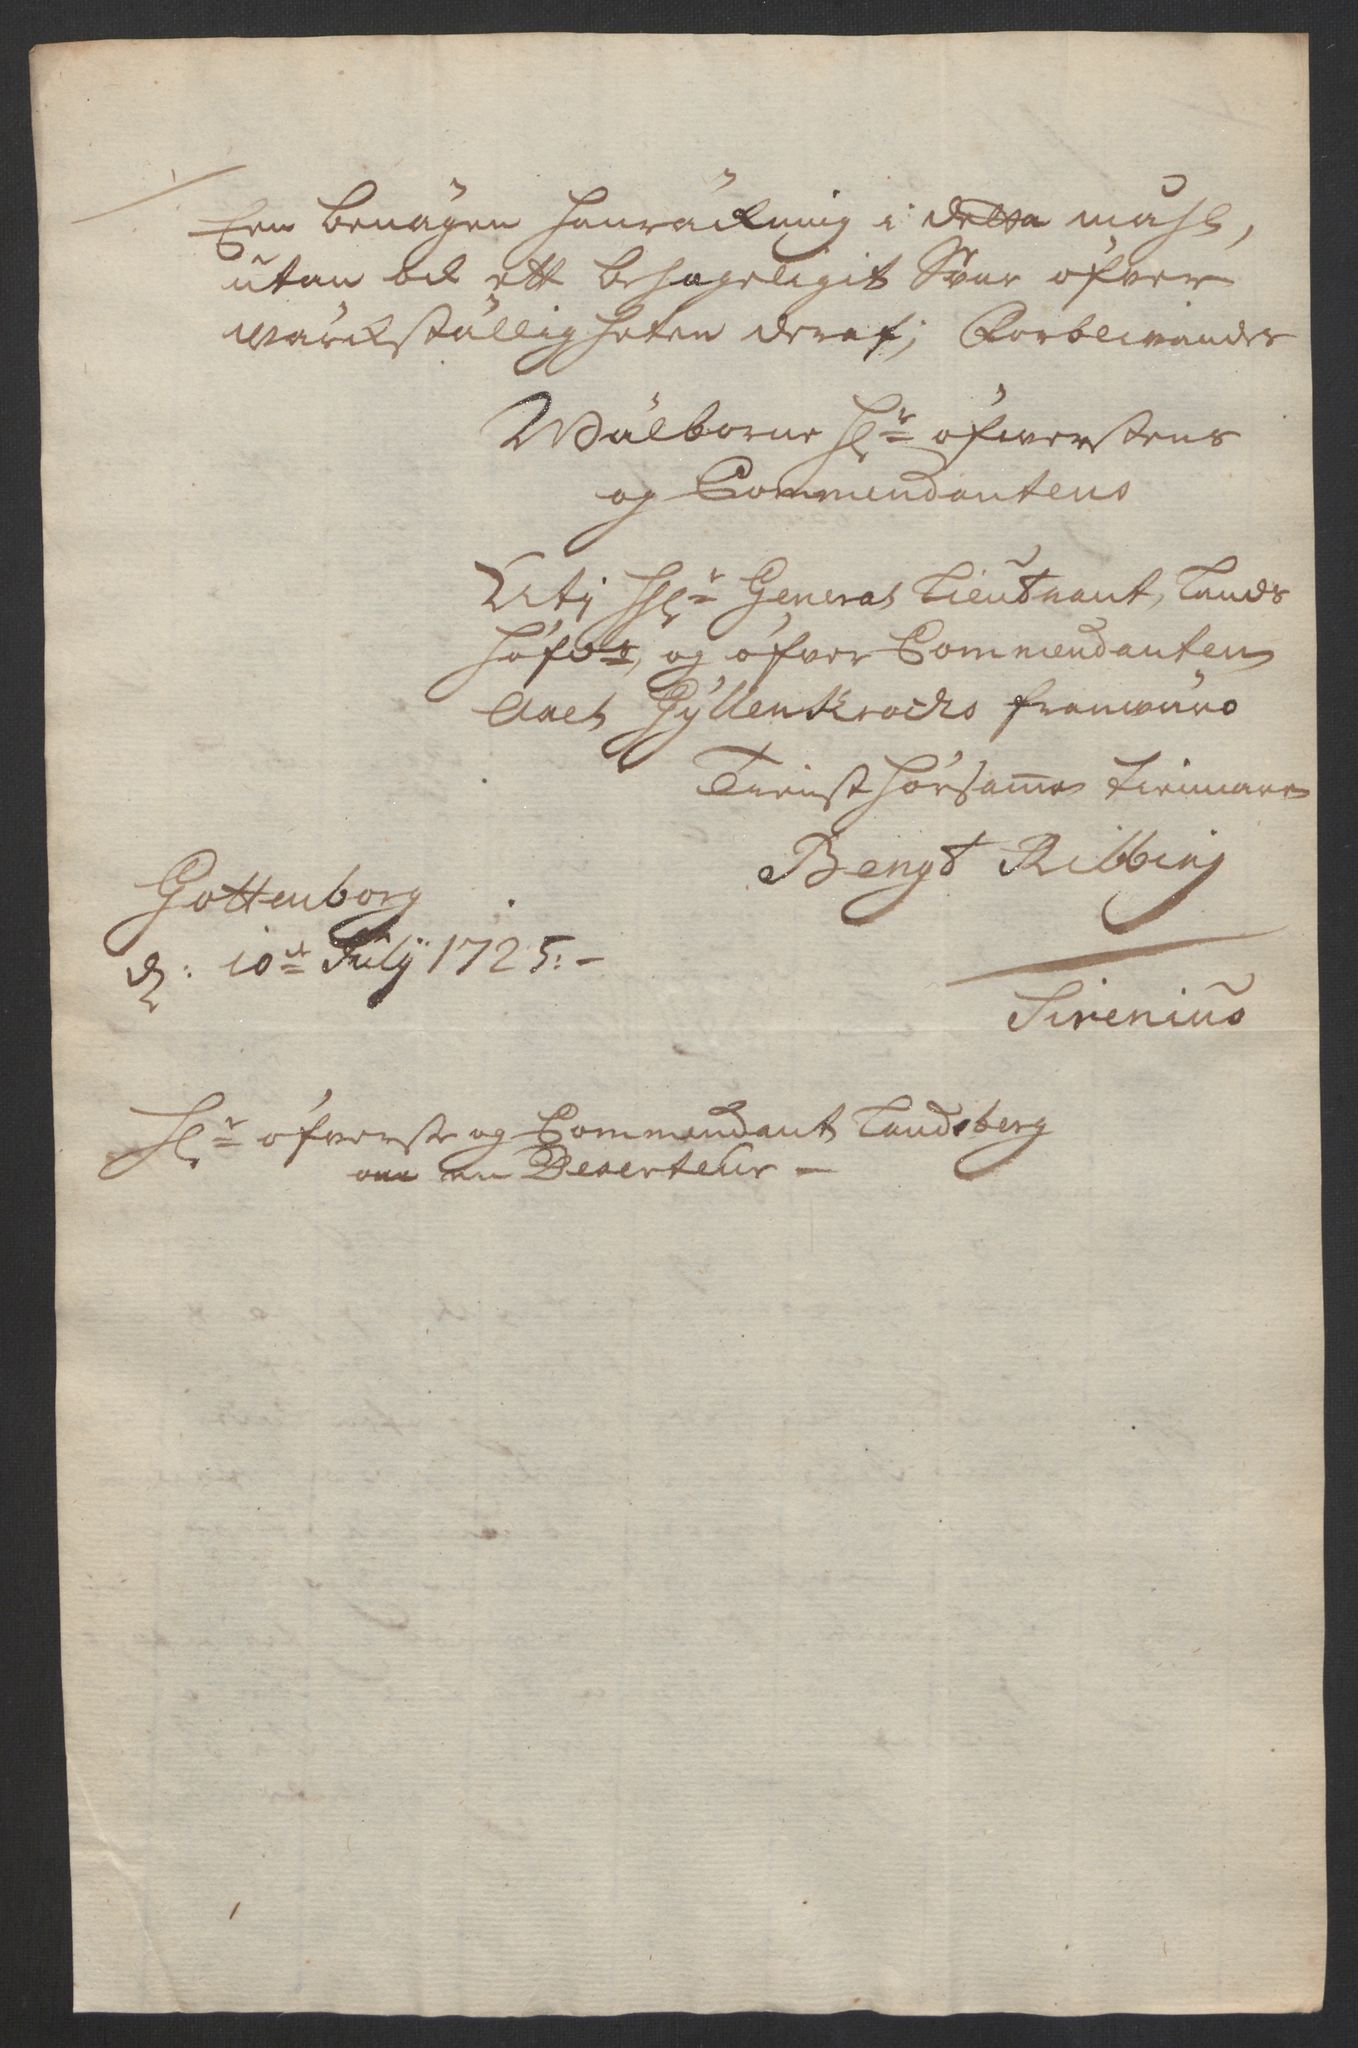 Een benägen hanräckning i detta mahl,
utan och ett behageligit Svar öfver
wärckställigheten deraf; Forblivandes
Wälborne Hr: öfwerstens
og Commendantens
Uti Hr: General Lieutnant, Lands
höfd: og öfver Commendanten
Axel Gyllenkrocks franwaro
Tienst hörsamme tienare
Bengt Ribbing
Gottenborg
d: 10de Julij 1725:-
Sirenius
Hr: öfverste og Commendant Landsberg
om en Deserteur -